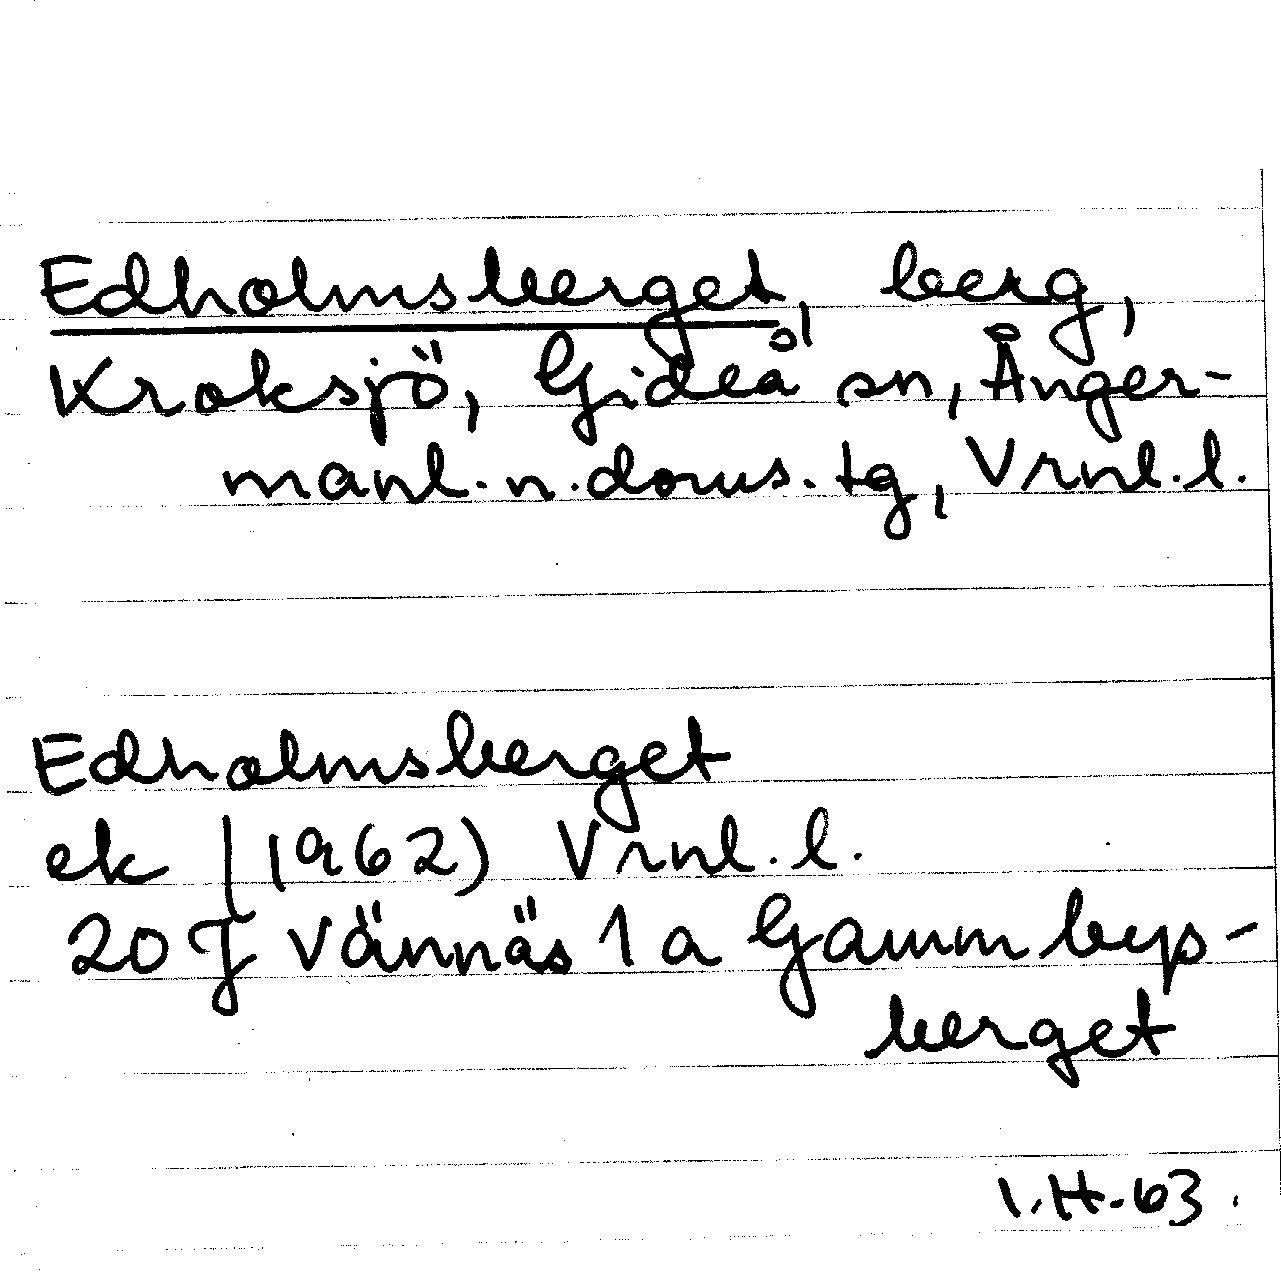 Edholmsberget, berg,
Kroksjö, Gideå sn, Ånger-
manl. n. doms. tg, Vrnl. l.
Edholmsberget
ek (1962) Vrnl. l.
20 J Vännäs 1 a Gammbyps-
berget
I.H-63.